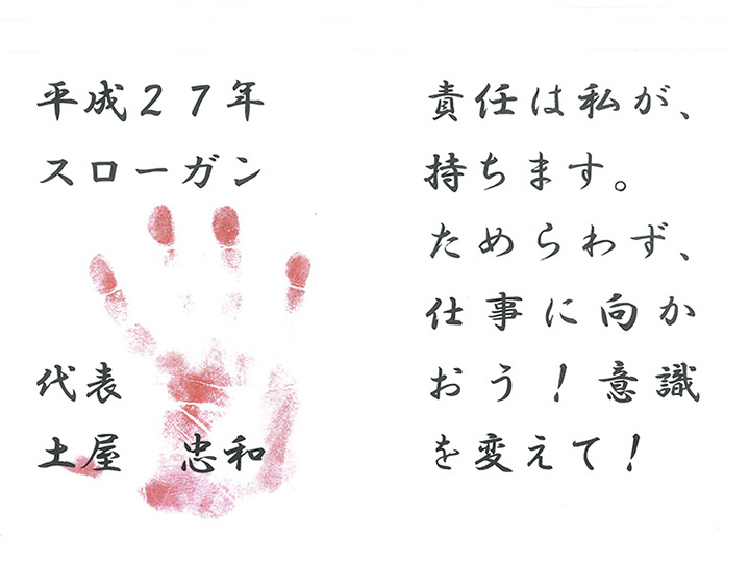 平成２７年
スローガン
代表
土屋　忠和
責任は私が、
持ちます。
ためらわず、
仕事に向か
おう！意識
を変えて！